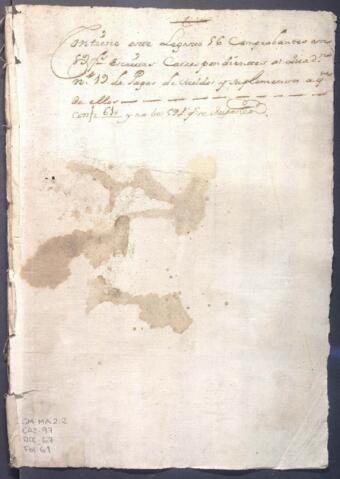 Contiene este Legaxo 56 Comprobantes en
53 fs. escritas Correspondientes al Quad.no
N.o 19 de Pagas de Sueldos y Suplementos a q.ta
de ellos
Conf. 61 y no los 59 q.e se
GM-MA 2-2
CAJ-97
DOC-67
FOL-61